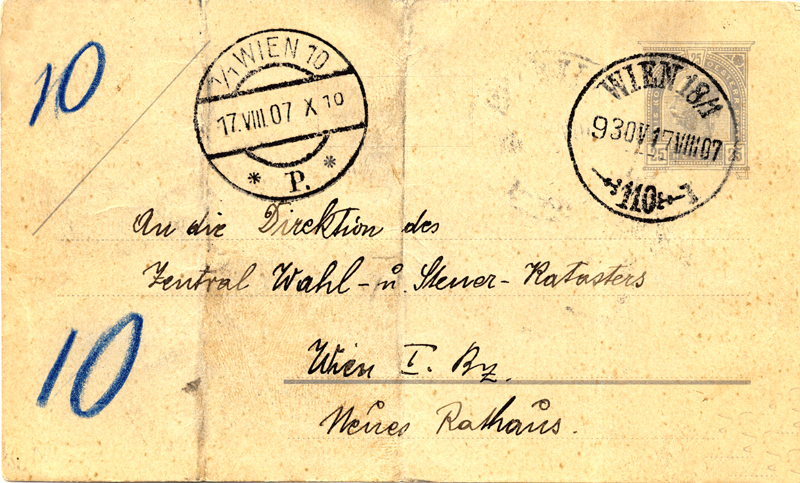 10
1/1 WIEN 10
17.VIII.07 X 10
* P. *
WIEN 18/1
930V 17 VIII 07
110
25 25
An die Direktion des
Zentral Wahl- u. Steuer-Katasters
10
Wien I. Bz.
Neues Rathaus.